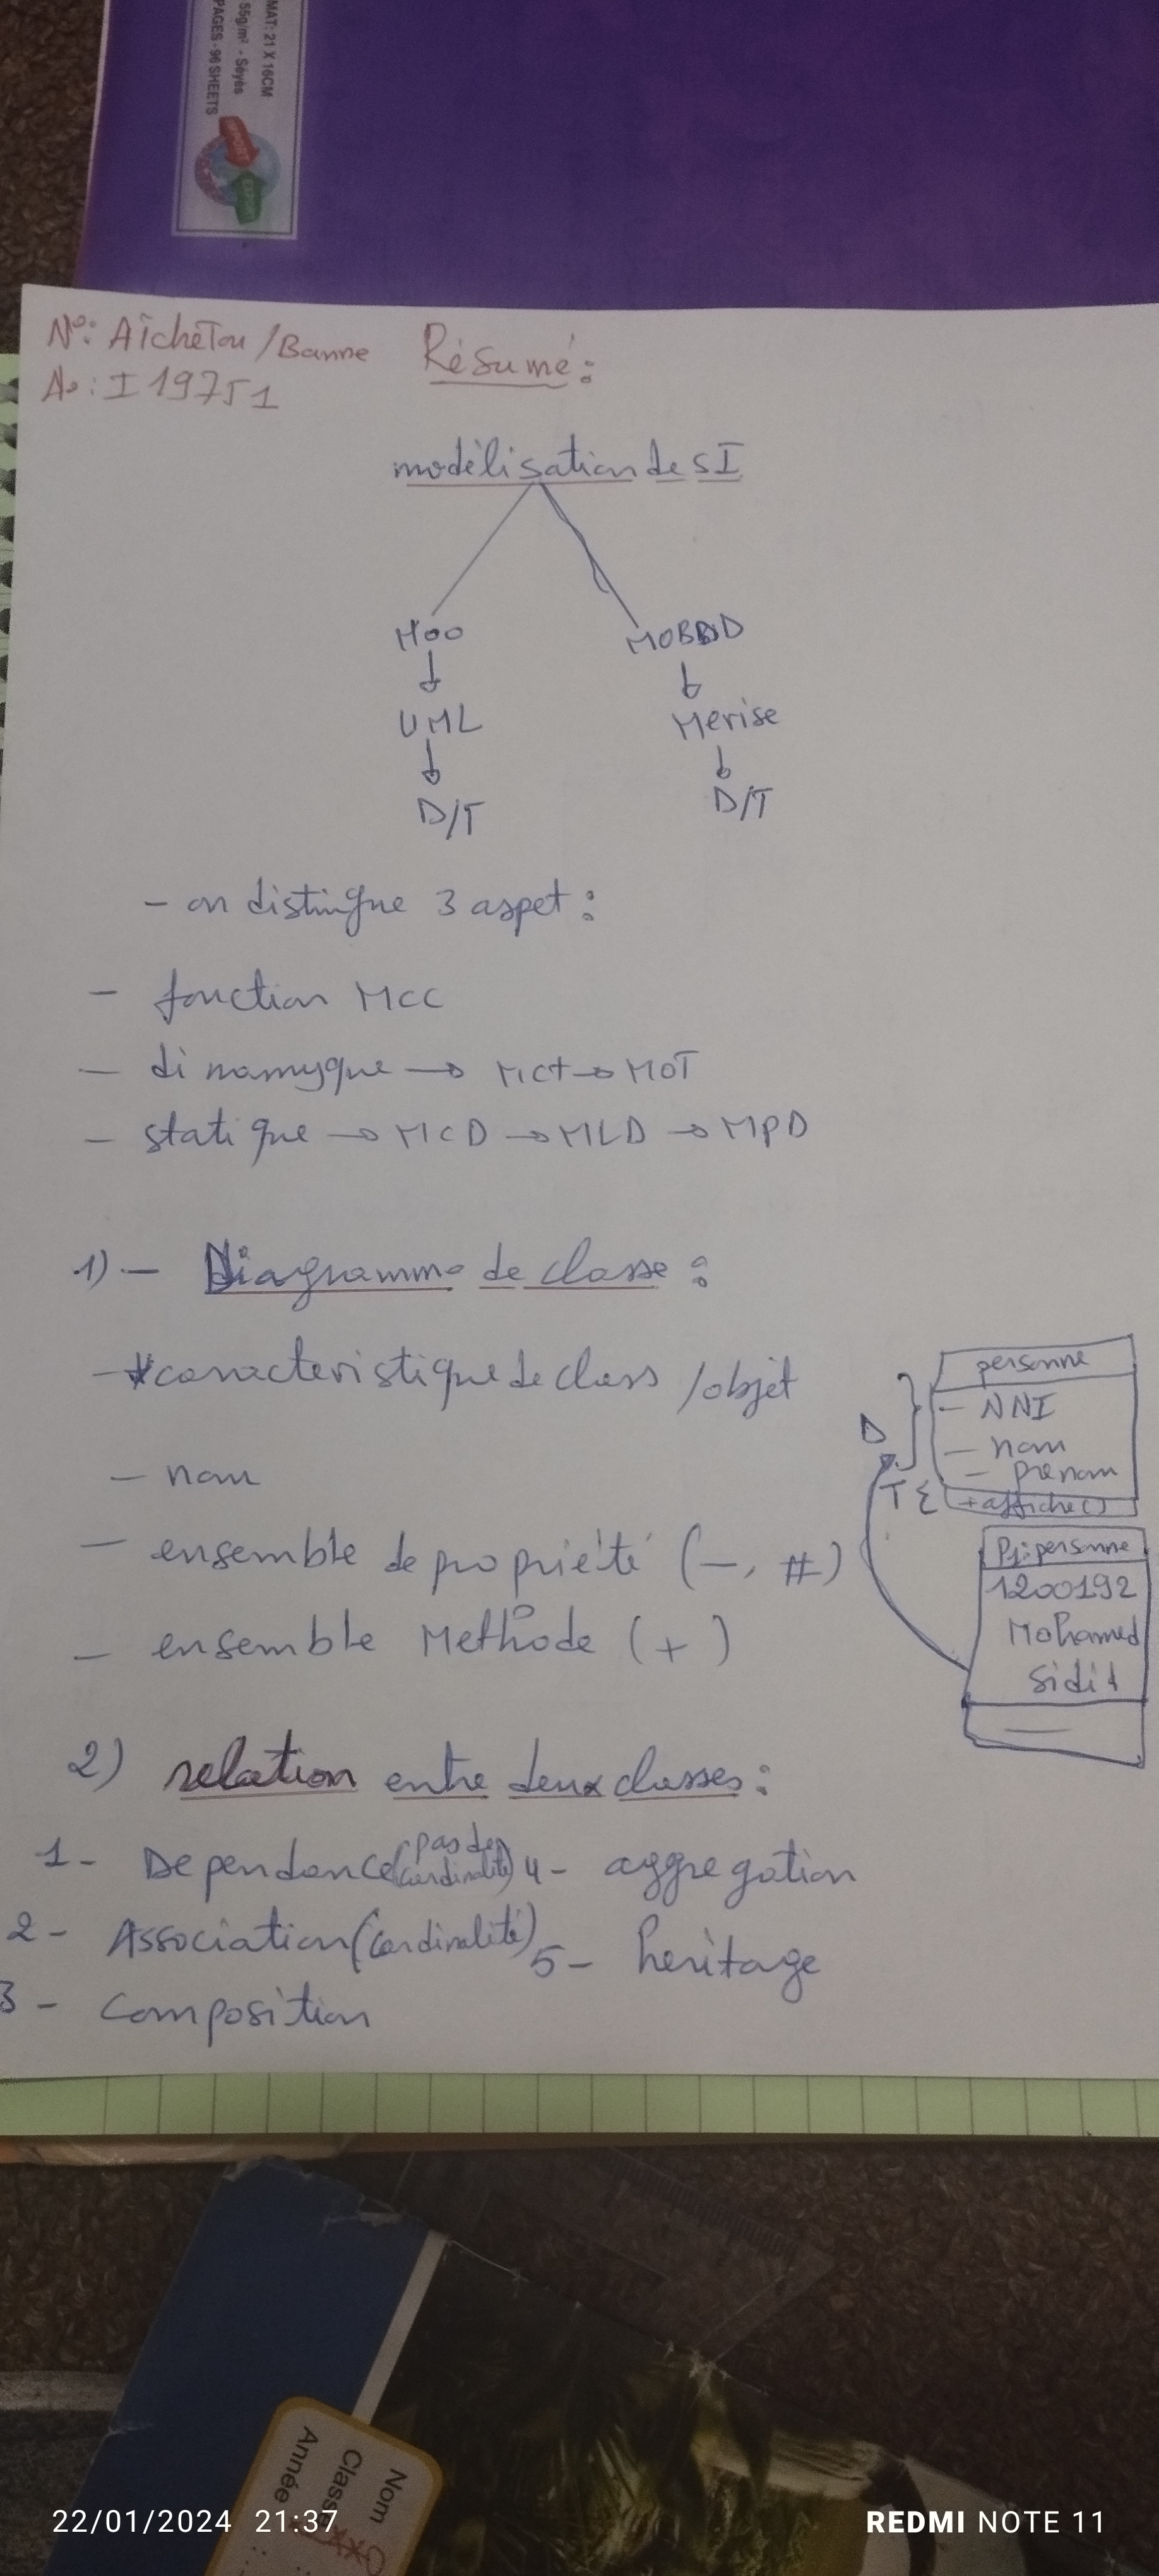 MAT: 21 X 16CM
55g/m² - Séyès
PAGES - 96 SHEETS
IMPORT
EXPORT
N°: AîcheTou/Banne Résumé:
I 19751
modèlisation de SI
Moo MOBBD
UML Merise
D/T D/T
- on distingue 3 aspet :
- fonction MCC
- dinamyque → MCT → MOT
- statique → MCD → MLD → MPD
1) - Diagramme de classe :
- caracteristique de class /objet
- nom
- ensemble de propriété (-, #)
- ensemble Methode (+)
personne
- NNI
- nom
- prenom
+affiche()
D
T
P1:personne
1200192
Mohamed
Sidi
2) relation entre deux classes :
1- Dependance (pas de cardinalité) 4- aggregation
2- Association (cardinalité) 5- heritage
3- Composition
Nom
Classe
Année
22/01/2024 21:37
REDMI NOTE 11